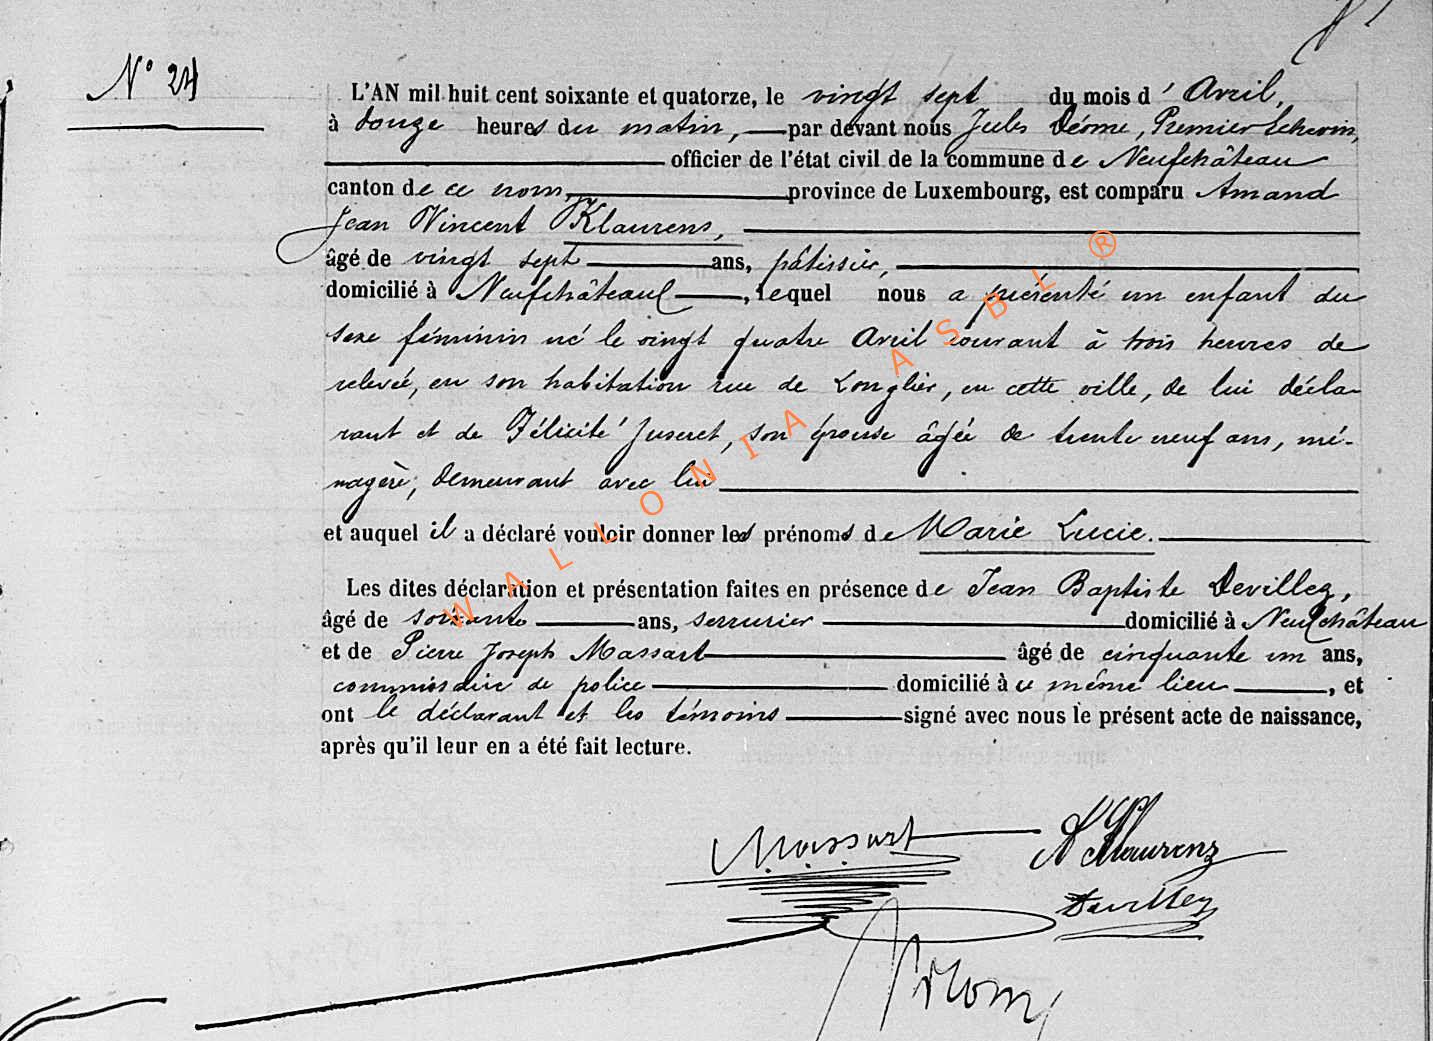 N° 24
L'AN mil huit cent soixante et quatorze, le vingt sept du mois d' Avril,
à douze heures du matin, par devant nous Jules Dérome, Premier Echevin,
officier de l'état civil de la commune de Neufchâteau
canton de ce nom, province de Luxembourg, est comparu Amand
Jean Vincent Klaurens,
âgé de vingt sept ans, pâtissier,
domicilié à Neufchâteau, lequel nous a présenté un enfant du
sexe féminin né le vingt quatre Avril courant à trois heures de
relevée, en son habitation rue de Longlier, en cette ville, de lui décla-
rant et de Félicité Juseret, son épouse âgée de trente neuf ans, mé-
nagère, demeurant avec lui
et auquel il a déclaré vouloir donner les prénoms de Marie Lucie.
Les dites déclaration et présentation faites en présence de Jean Baptiste Devillez,
âgé de soixante ans, serrurier domicilié à Neufchâteau
et de Pierre Joseph Massart âgé de cinquante un ans,
commissaire de police domicilié à ce même lieu, et
ont le déclarant et les témoins signé avec nous le présent acte de naissance,
après qu'il leur en a été fait lecture.
Massart A Klaurens
Devillez
WALLONIA ASBL ®